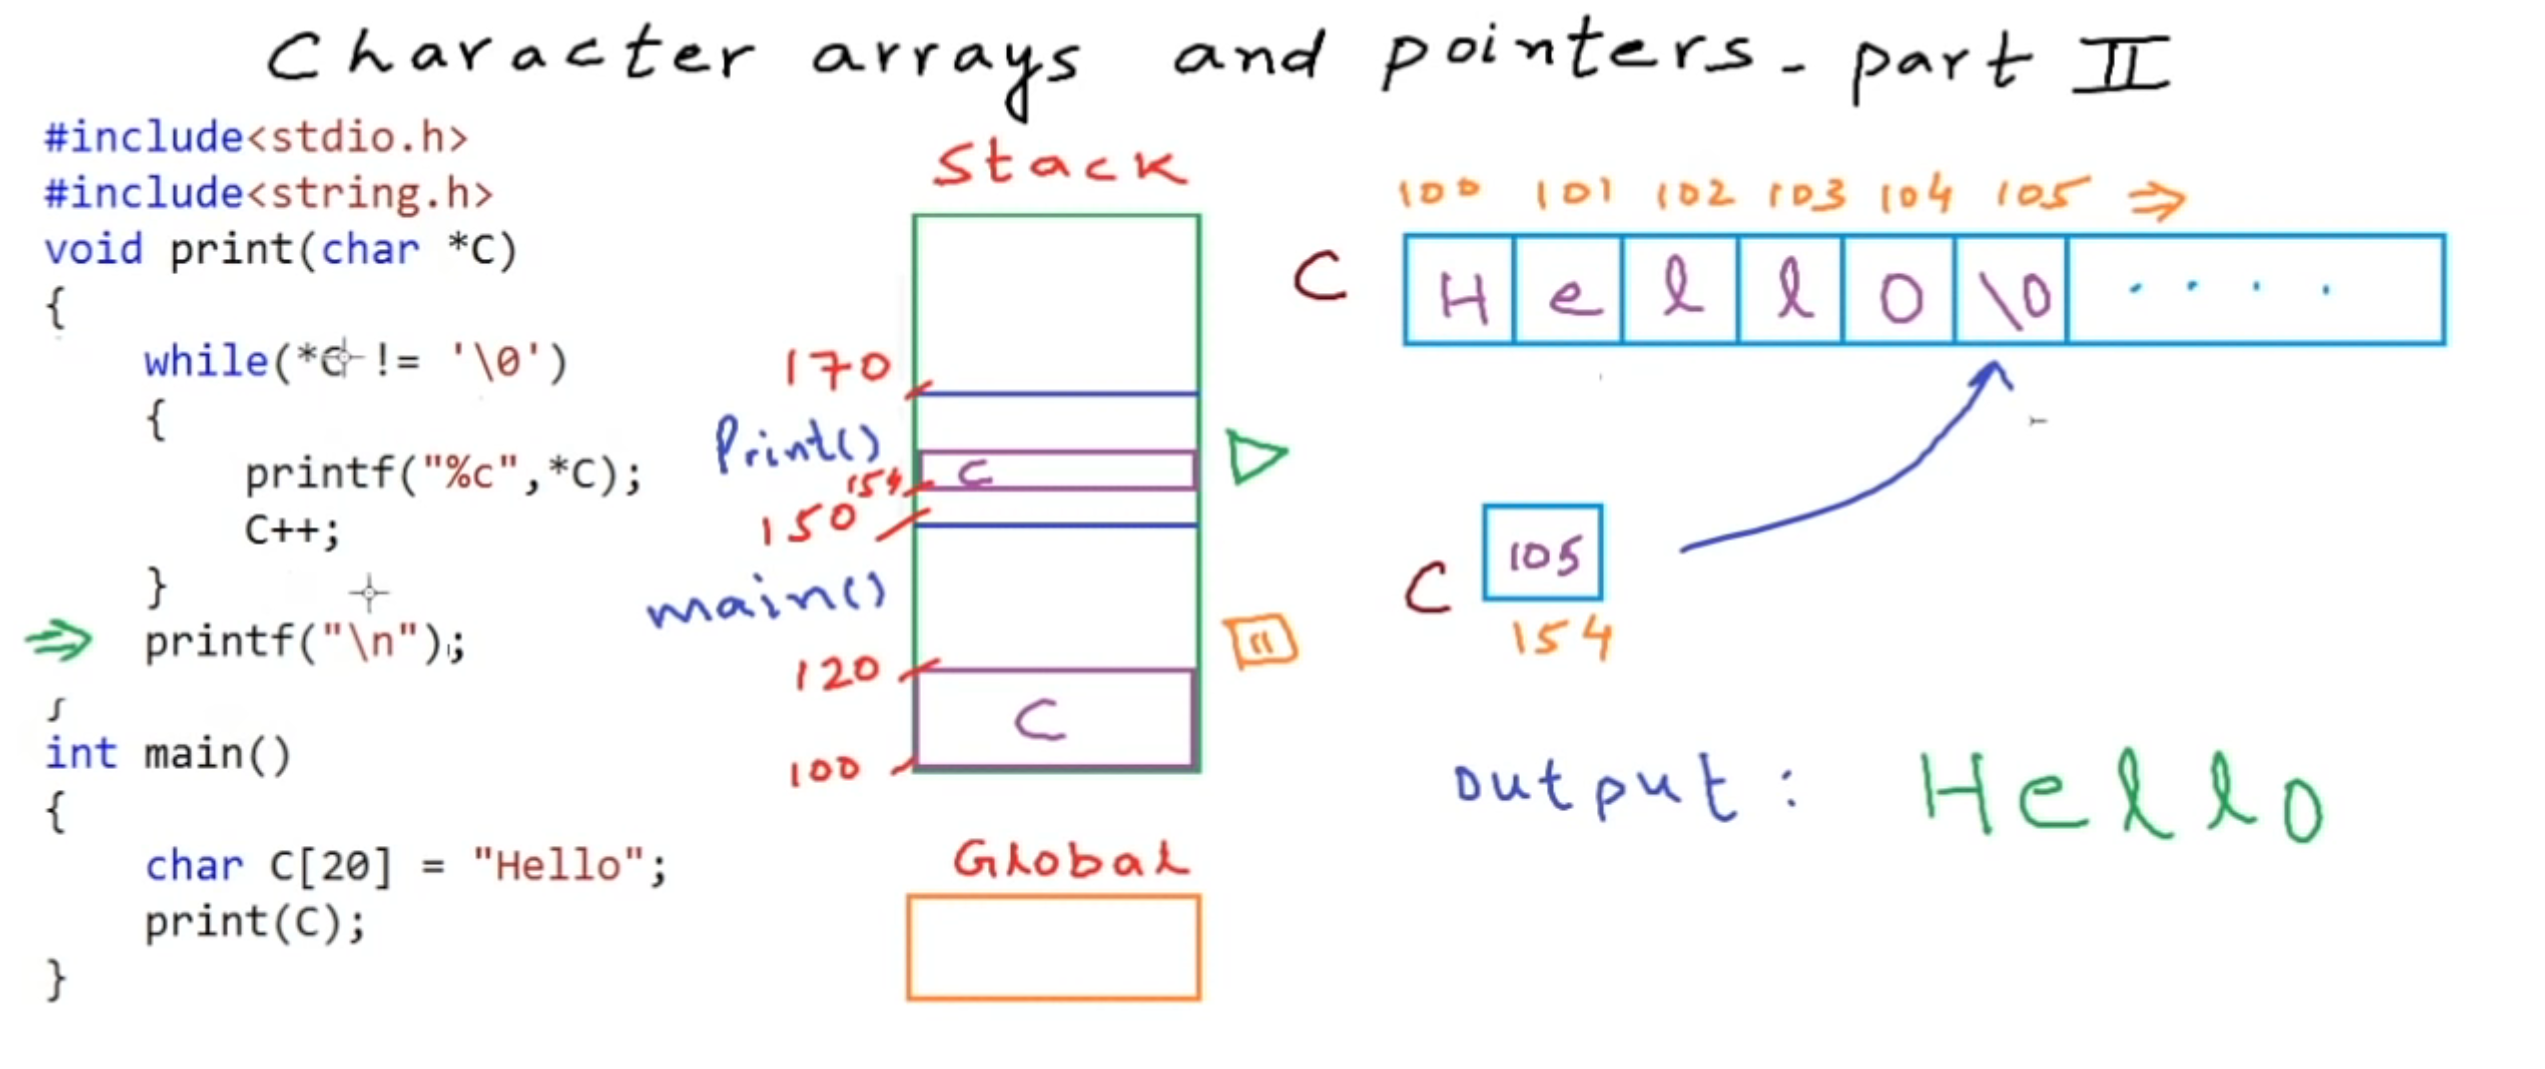 Character arrays and pointers - part II
#include<stdio.h>
#include<string.h>
void print(char *C)
{
while(*C != '\0')
{
printf("%c",*C);
C++;
}
printf("\n");
int main()
{
char C[20] = "Hello";
print(C);
}
Stack
170
Print()
154
C
150
main()
120
C
100
Global
100 101 102 103 104 105 ⇒
C H e l l O \0 . . . .
C 105
154
output : Hello